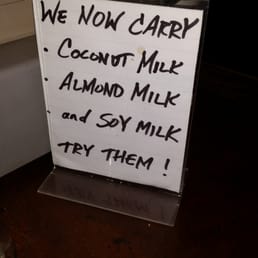 WE NOW CARRY
• COCONUT MILK
• ALMOND MILK
• and SOY MILK
TRY THEM !